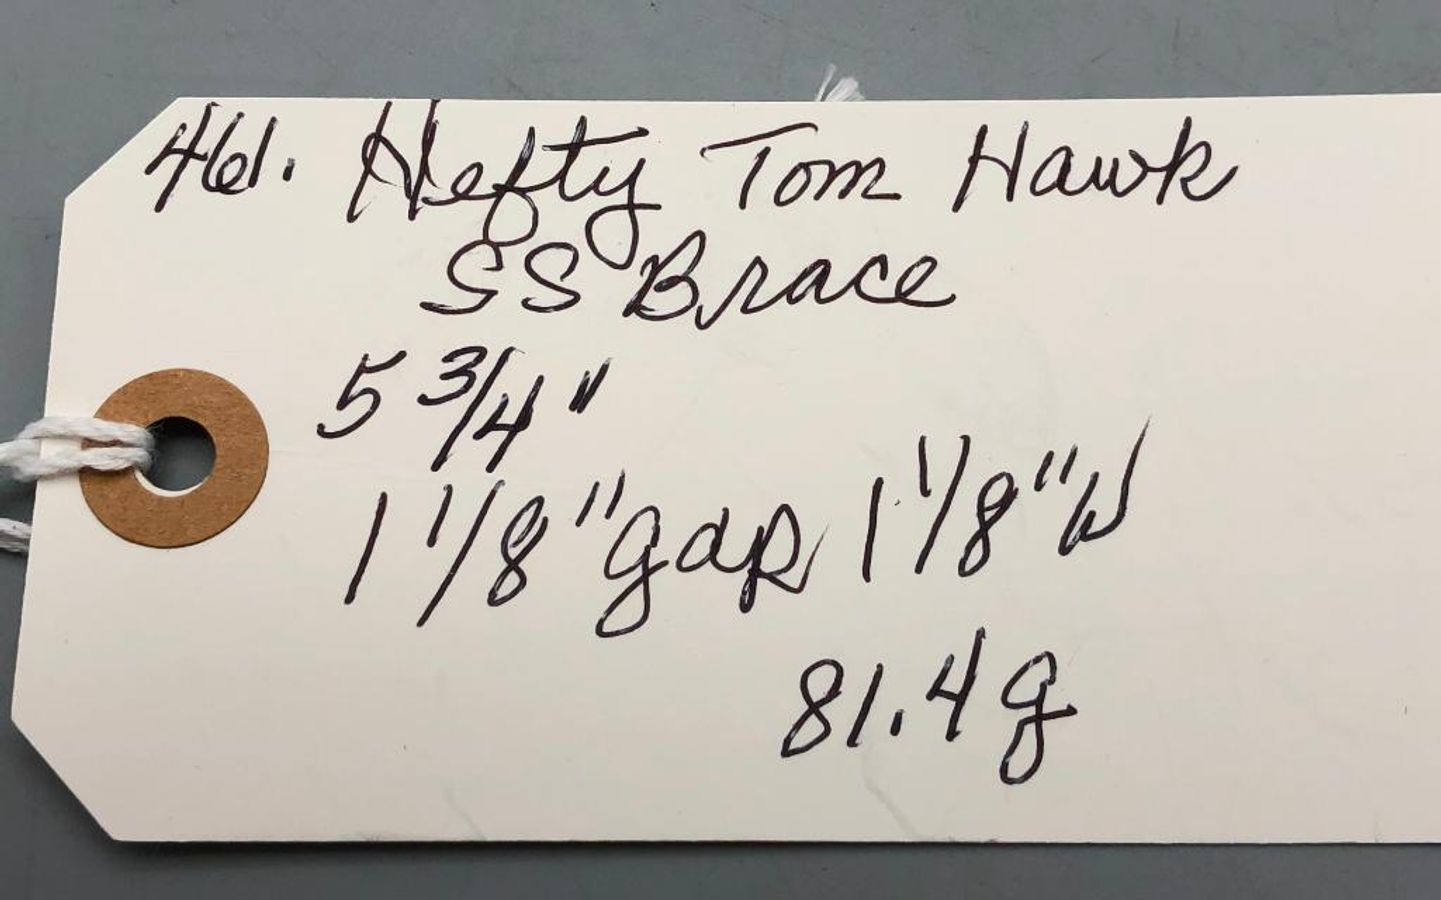 461. Hefty Tom Hawk
SS Brace
5 3/4"
1 1/8" gap 1 1/8" W
81.4 g